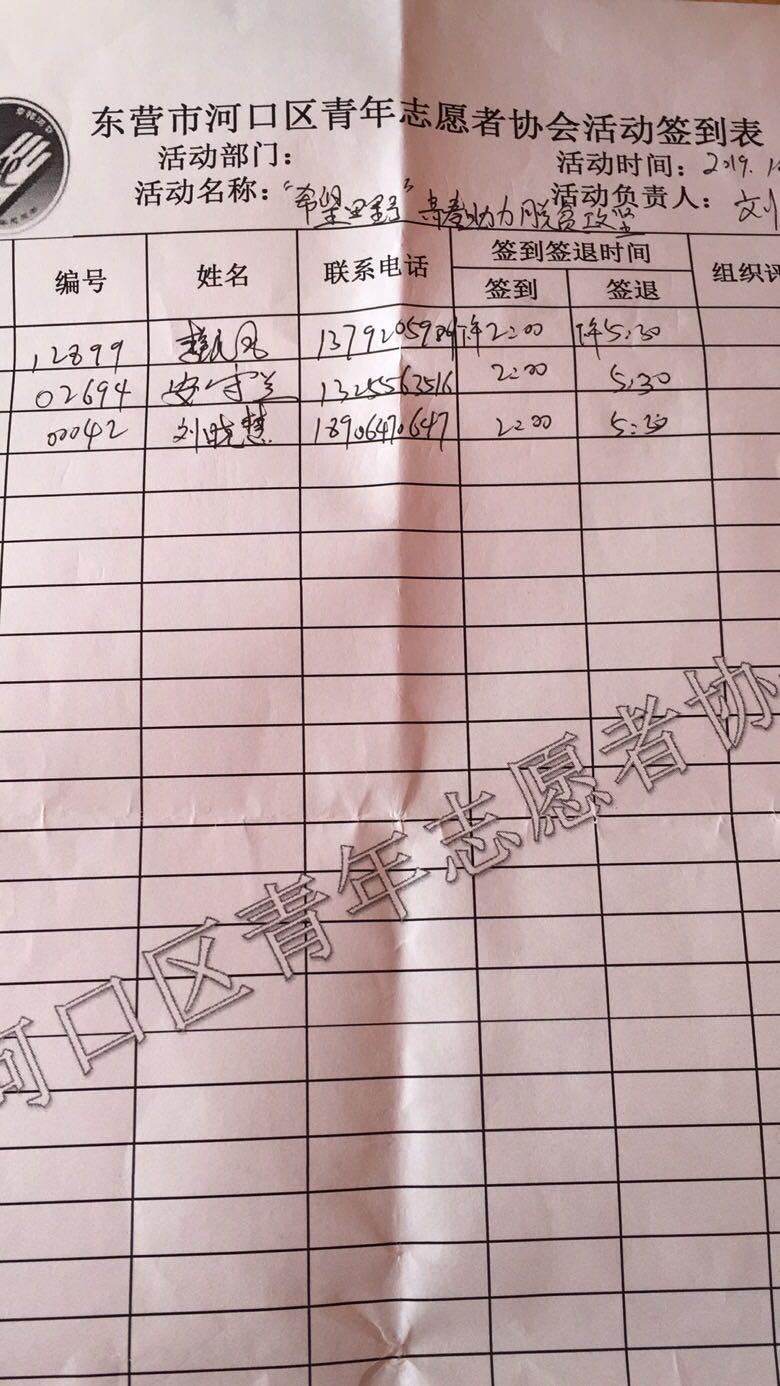 东营市河口区青年志愿者协会活动签到表
活动部门： 活动时间：2019.1
活动名称：“希望田野” 青春助力脱贫攻坚 活动负责人：刘
编号 姓名 联系电话 签到签退时间 组织评
签到 签退
12899 凤 1379205989 下午2:00 下午5:30
02694 安守兰 13255563516 2:00 5:30
00042 刘晓慧 18906470647 2:00 5:30
河口区青年志愿者协